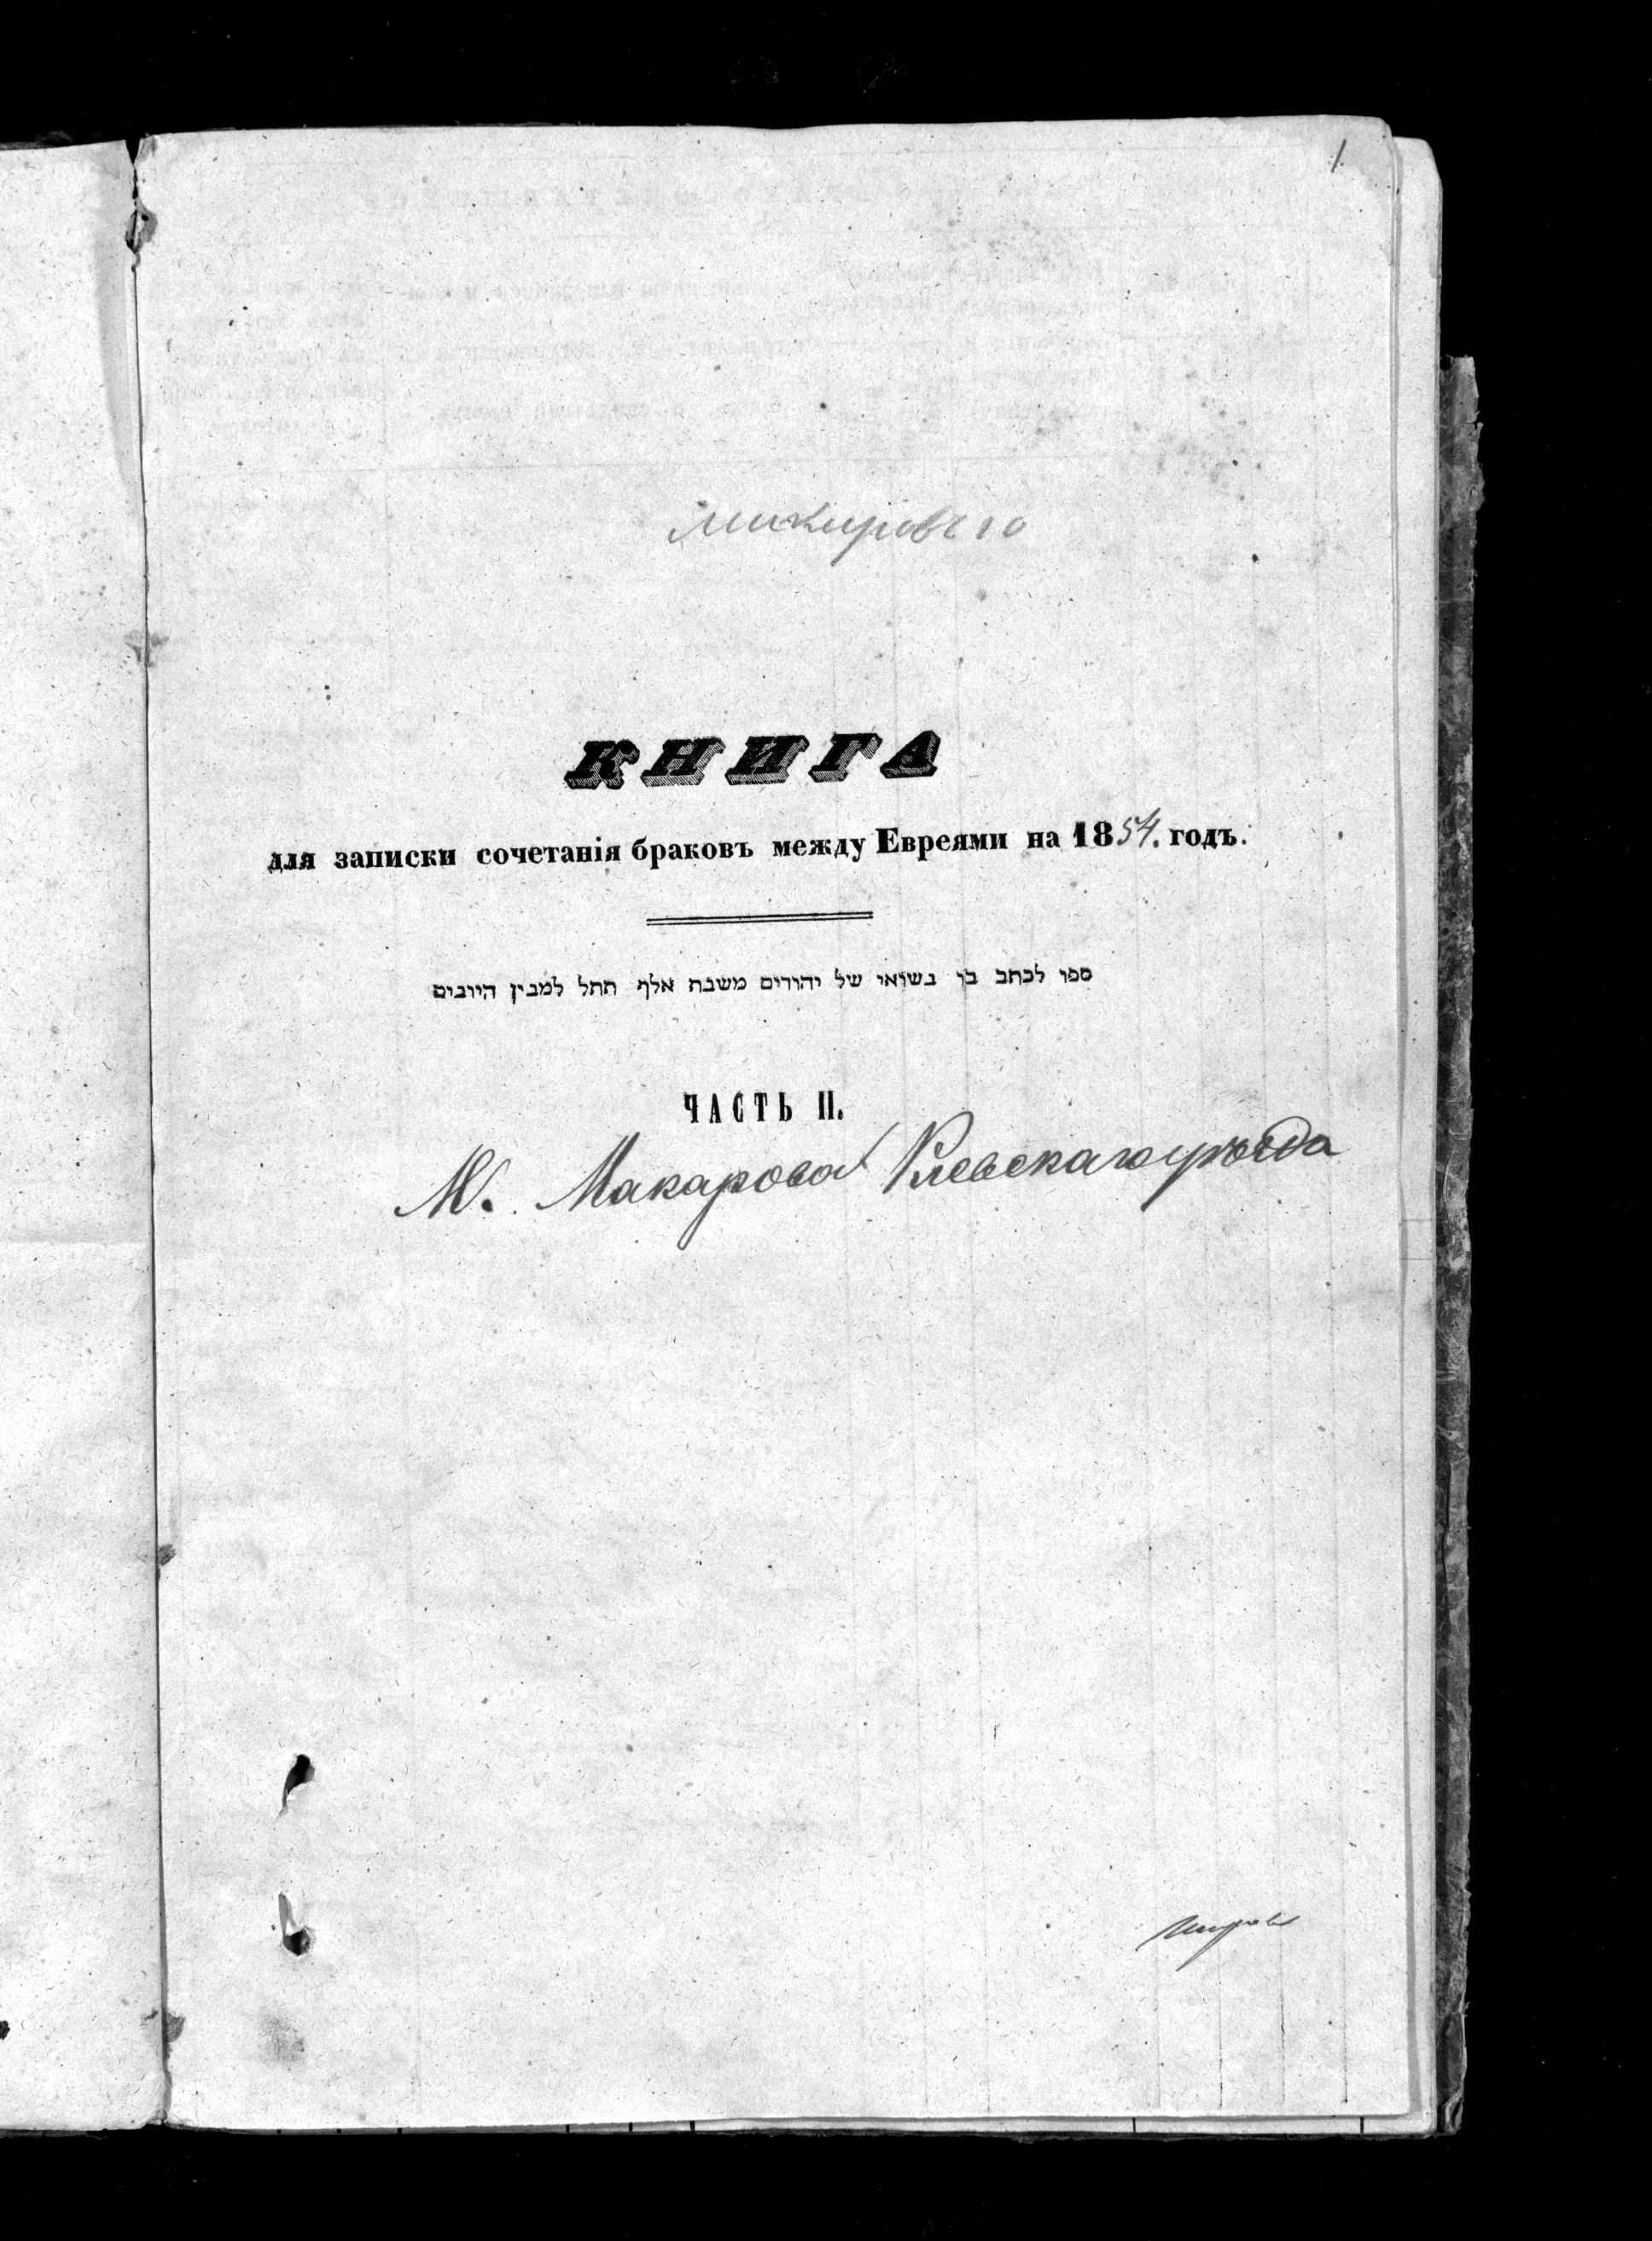 1
КНИГА
для записки сочетанія браковъ между Евреями на 1854. годъ.
ספו לכתב בו נשואי של יהודים משנת אלף תתל למנין היונים
ЧАСТЬ II.
М. Макарова Кіевскаго уѣзда